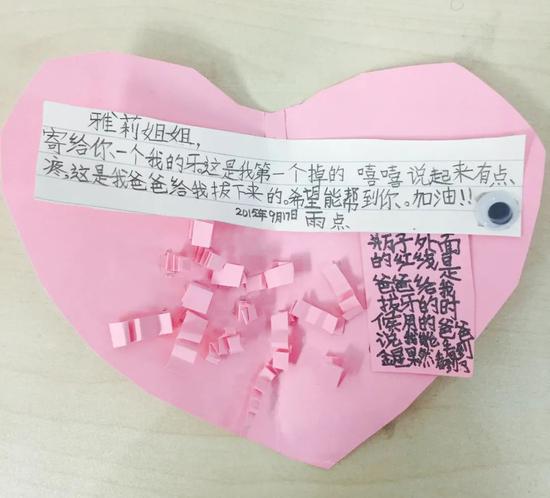 雅莉姐姐,
寄给你一个我的牙这是我第一个掉的 嘻嘻说起来有点
疼,这是我爸爸给我拔下来的。希望能帮到你。加油!!
2015年9月17日 雨点
瓶子外面
的红线是
爸爸给我
拔牙的时
候用的爸爸
说我
果然